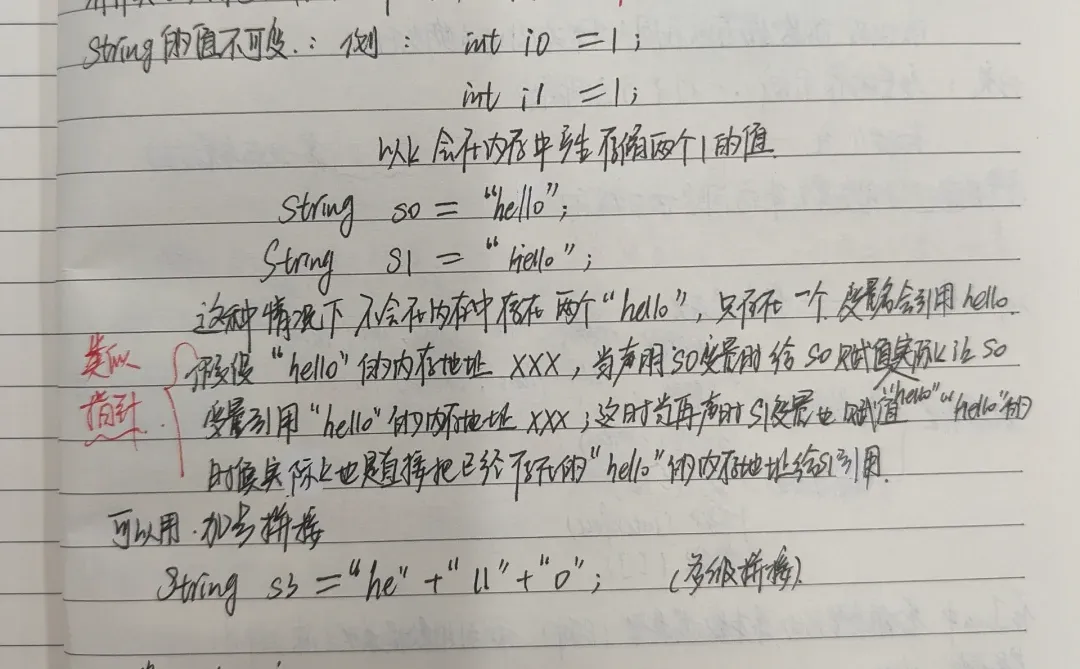 String的值不可变.：例： int i0 = 1;
int i1 = 1;
以上会在内存中产生存储两个1的值.
String s0 = "hello";
String s1 = "hello";
这种情况下不会在内存中存在两个"hello"，只存在一个.变量名会引用hello.
类似
指针.
假设"hello"的内存地址 XXX，当声明s0变量时给s0赋值实际上让s0
变量引用"hello"的内存地址 XXX；这时当再声时s1变量也赋值"hello" "hello"的
时候实际上也是直接把已经存在的"hello"的内存地址给s1引用.
可以用.加号拼接
String s3 = "he" + "ll" + "o"; (多级拼接).